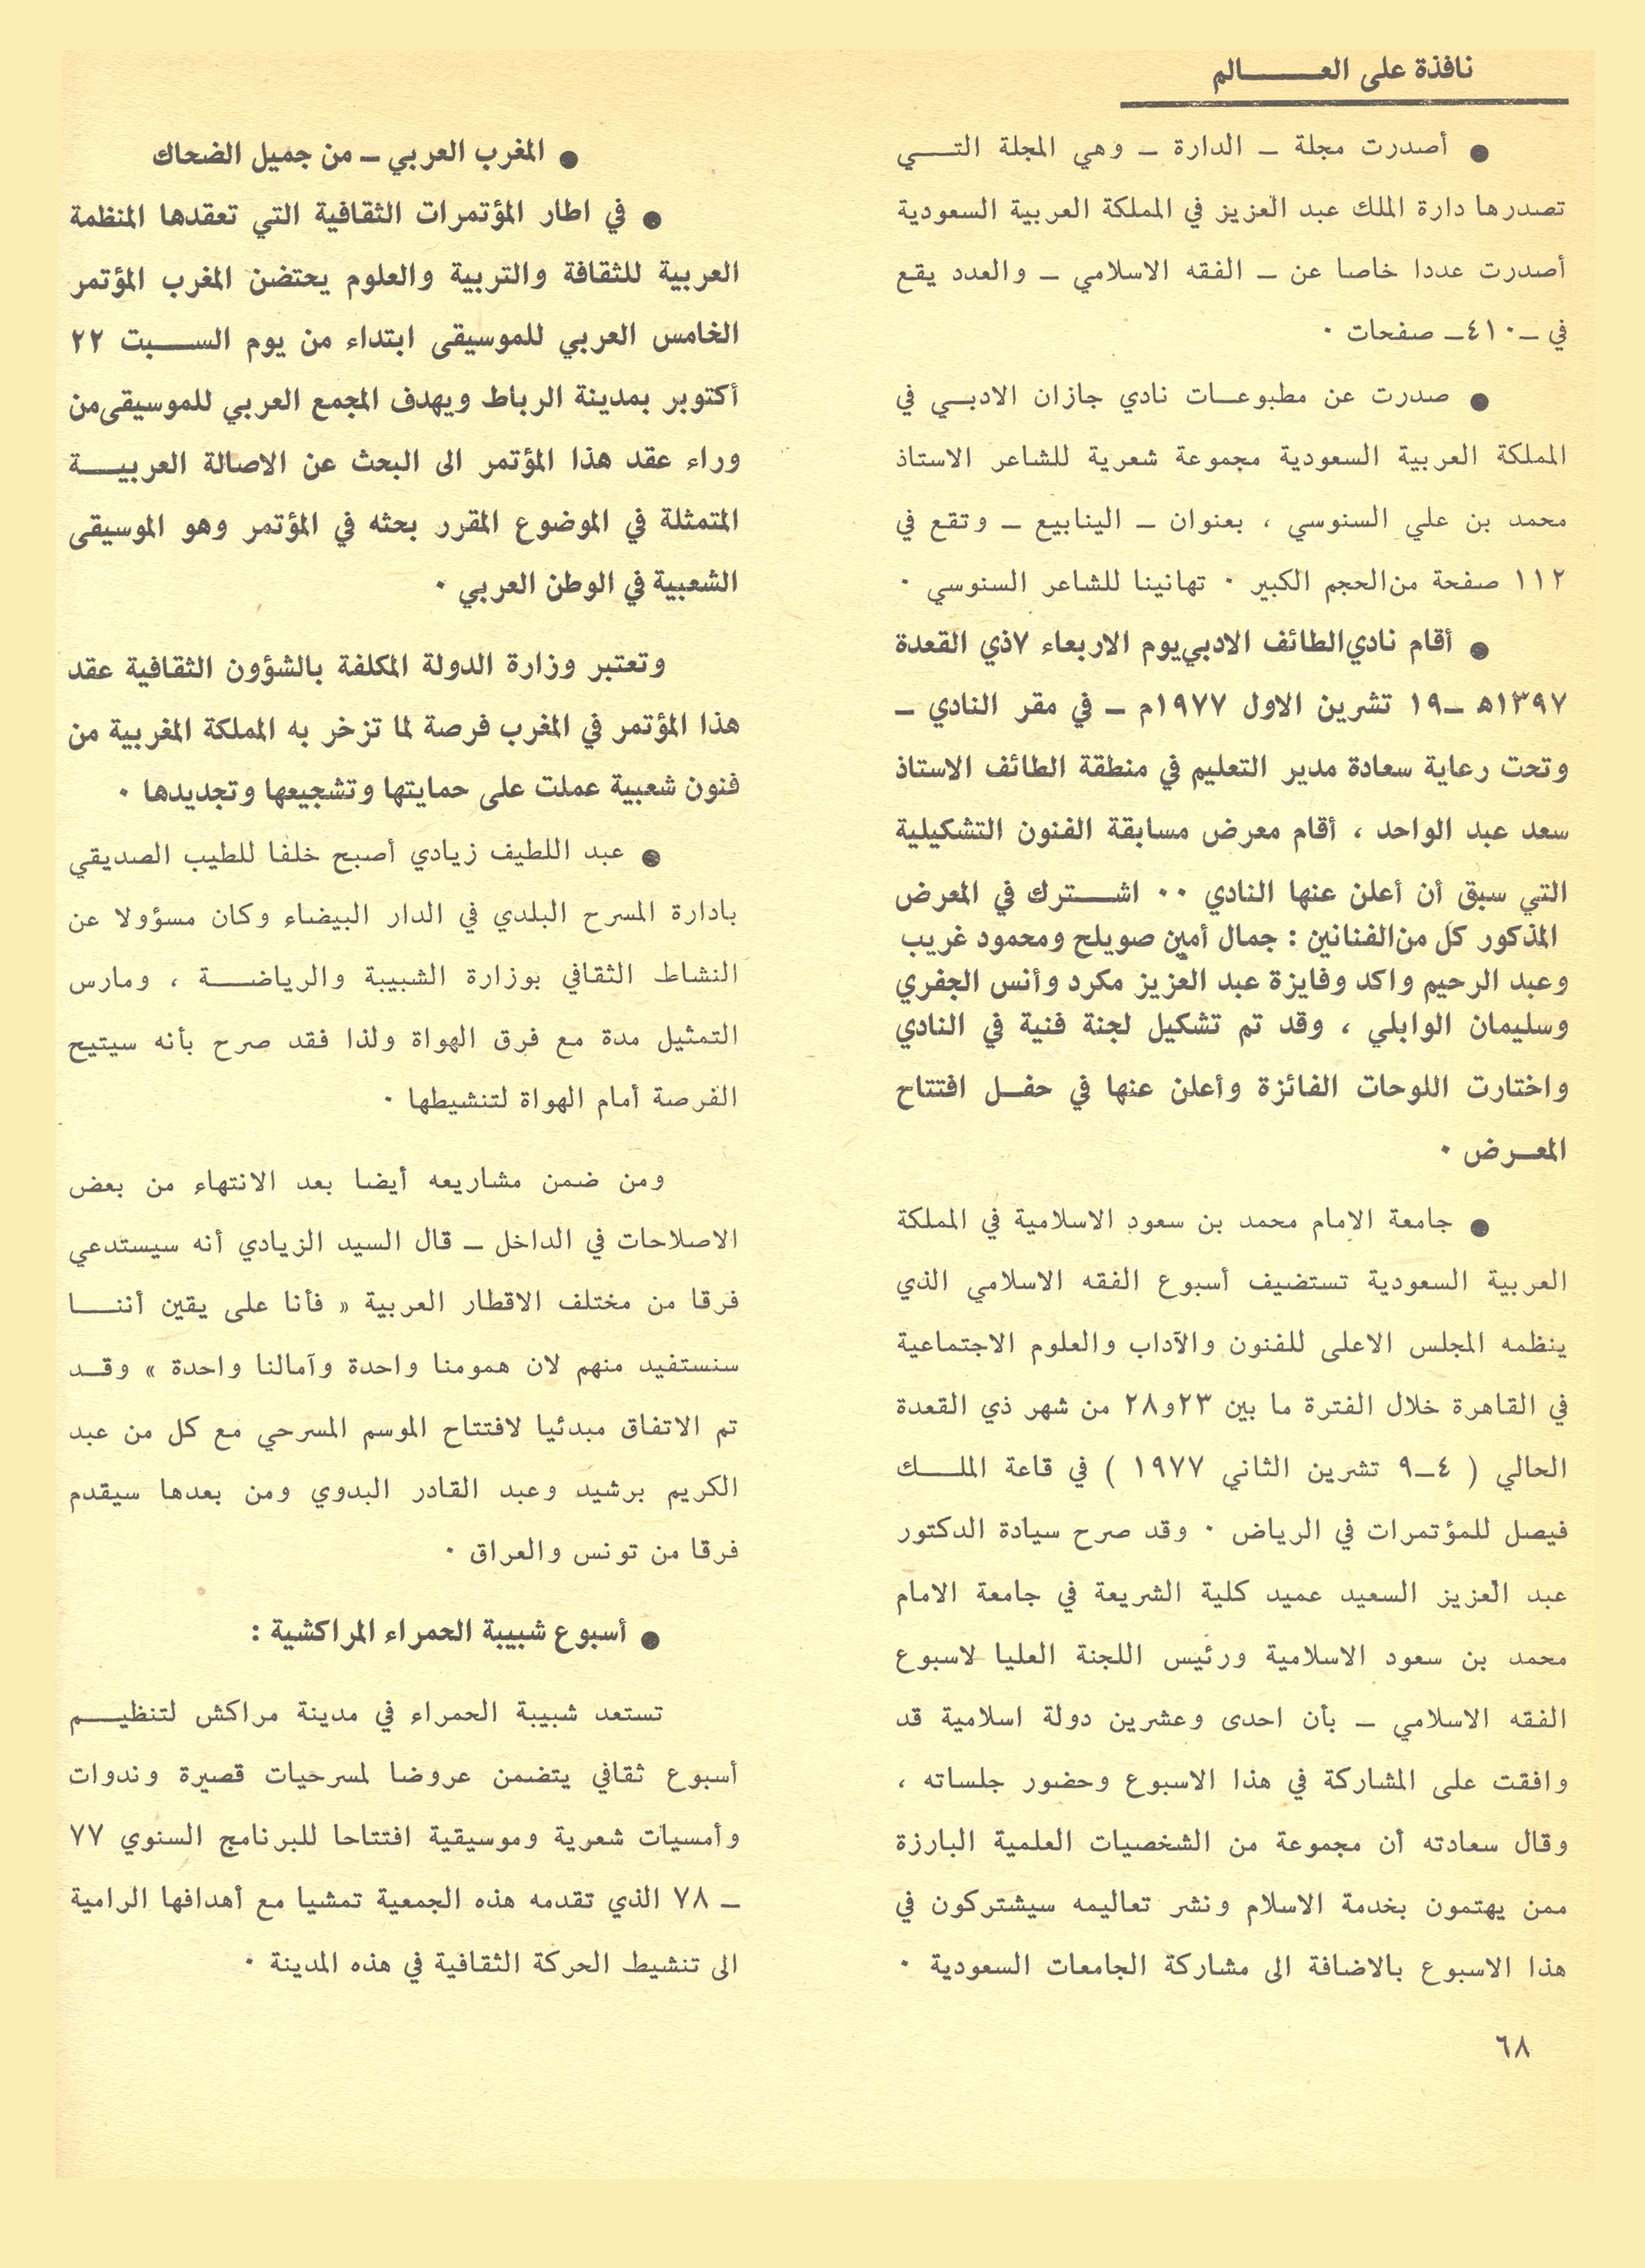 نافذة على العـــــالم
● أصدرت مجلة ــ الدارة ــ وهي المجلة التـــي
تصدرها دارة الملك عبد العزيز في المملكة العربية السعودية
أصدرت عددا خاصا عن ــ الفقه الاسلامي ــ والعدد يقع
في ــ٤١٠ــ صفحات ٠
● صدرت عن مطبوعــات نادي جازان الادبــي في
المملكة العربية السعودية مجموعة شعرية للشاعر الاستاذ
محمد بن علي السنوسي ، بعنوان ــ الينابيع ــ وتقع في
١١٢ صفحة من الحجم الكبير ٠ تهانينا للشاعر السنوسي ٠
● أقام نادي الطائف الادبي يوم الاربعاء ٧ذي القعدة
١٣٩٧هـ ــ١٩ تشرين الاول ١٩٧٧م ــ في مقر النادي ــ
وتحت رعاية سعادة مدير التعليم في منطقة الطائف الاستاذ
سعد عبد الواحد ، أقام معرض مسابقة الفنون التشكيلية
التي سبق أن أعلن عنها النادي ٠٠ اشـــترك في المعرض
المذكور كل من الفنانين : جمال أمين صويلح ومحمود غريب
وعبد الرحيم واكد وفايزة عبد العزيز مكرد وأنس الجفري
وسليمان الوابلي ، وقد تم تشكيل لجنة فنية في النادي
واختارت اللوحات الفائزة وأعلن عنها في حفــل افتتاح
المعــرض ٠
● جامعة الامام محمد بن سعود الاسلامية في المملكة
العربية السعودية تستضيف أسبوع الفقه الاسلامي الذي
ينظمه المجلس الاعلى للفنون والآداب والعلوم الاجتماعية
في القاهرة خلال الفترة ما بين ٢٣و٢٨ من شهر ذي القعدة
الحالي ( ٤ــ٩ تشرين الثاني ١٩٧٧ ) في قاعة الملـــك
فيصل للمؤتمرات في الرياض ٠ وقد صرح سيادة الدكتور
عبد العزيز السعيد عميد كلية الشريعة في جامعة الامام
محمد بن سعود الاسلامية ورئيس اللجنة العليا لاسبوع
الفقه الاسلامي ــ بأن احدى وعشرين دولة اسلامية قد
وافقت على المشاركة في هذا الاسبوع وحضور جلساته ،
وقال سعادته أن مجموعة من الشخصيات العلمية البارزة
ممن يهتمون بخدمة الاسلام ونشر تعاليمه سيشتركون في
هذا الاسبوع بالاضافة الى مشاركة الجامعات السعودية ٠
● المغرب العربي ــ من جميل الضحاك
● في اطار المؤتمرات الثقافية التي تعقدها المنظمة
العربية للثقافة والتربية والعلوم يحتضن المغرب المؤتمر
الخامس العربي للموسيقى ابتداء من يوم الســـبت ٢٢
أكتوبر بمدينة الرباط ويهدف المجمع العربي للموسيقى من
وراء عقد هذا المؤتمر الى البحث عن الاصالة العربيـــة
المتمثلة في الموضوع المقرر بحثه في المؤتمر وهو الموسيقى
الشعبية في الوطن العربي ٠
وتعتبر وزارة الدولة المكلفة بالشؤون الثقافية عقد
هذا المؤتمر في المغرب فرصة لما تزخر به المملكة المغربية من
فنون شعبية عملت على حمايتها وتشجيعها وتجديدها ٠
● عبد اللطيف زيادي أصبح خلفا للطيب الصديقي
بادارة المسرح البلدي في الدار البيضاء وكان مسؤولا عن
النشاط الثقافي بوزارة الشبيبة والرياضـــة ، ومارس
التمثيل مدة مع فرق الهواة ولذا فقد صرح بأنه سيتيح
الفرصة أمام الهواة لتنشيطها ٠
ومن ضمن مشاريعه أيضا بعد الانتهاء من بعض
الاصلاحات في الداخل ــ قال السيد الزيادي أنه سيستدعي
فرقا من مختلف الاقطار العربية « فأنا على يقين أننـــا
سنستفيد منهم لان همومنا واحدة وآمالنا واحدة » وقــد
تم الاتفاق مبدئيا لافتتاح الموسم المسرحي مع كل من عبد
الكريم برشيد وعبد القادر البدوي ومن بعدها سيقدم
فرقا من تونس والعراق ٠
● أسبوع شبيبة الحمراء المراكشية :
تستعد شبيبة الحمراء في مدينة مراكش لتنظيـــم
أسبوع ثقافي يتضمن عروضا لمسرحيات قصيرة وندوات
وأمسيات شعرية وموسيقية افتتاحا للبرنامج السنوي ٧٧
ــ ٧٨ الذي تقدمه هذه الجمعية تمشيا مع أهدافها الرامية
الى تنشيط الحركة الثقافية في هذه المدينة ٠
٦٨